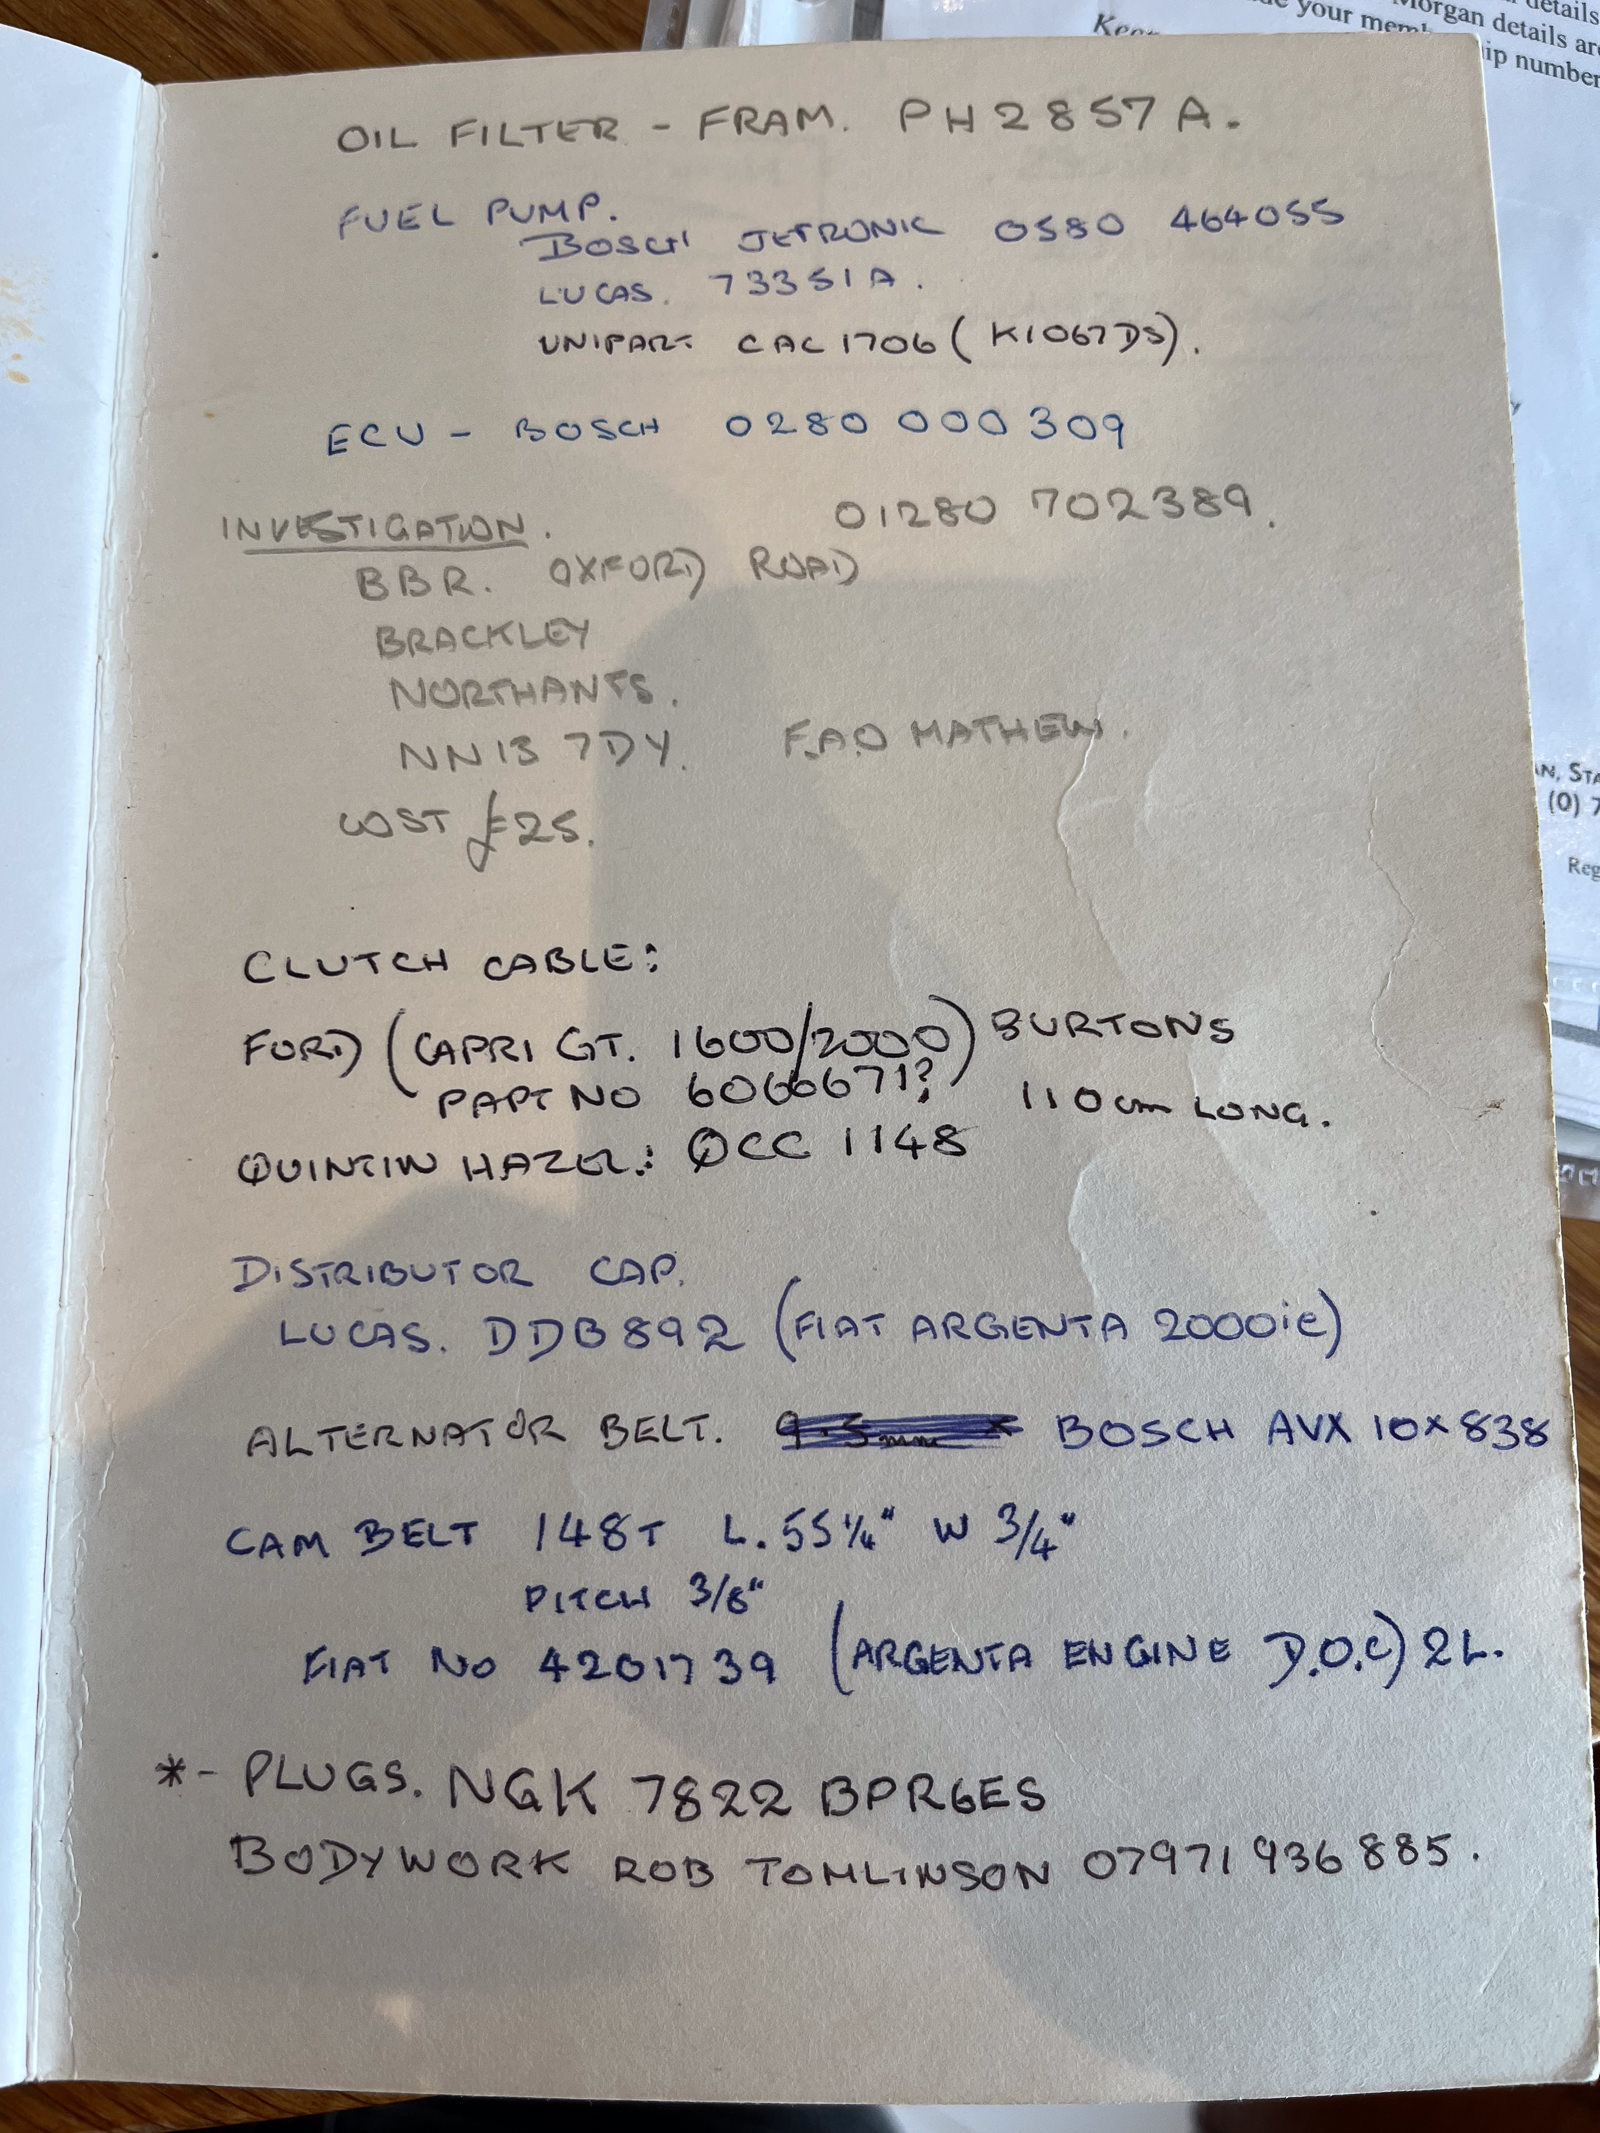 OIL FILTER - FRAM. PH2857A.
FUEL PUMP.
BOSCH JETRONIC 0580 464055
LUCAS. 73351A.
UNIPART CAC1706 (K1067DS).
ECU - BOSCH 0280 000 309
01280 702389.
INVESTIGATION.
BBR. OXFORD ROAD
BRACKLEY
NORTHANTS.
NN13 7DY. F.A.O MATHEW.
COST £25.
CLUTCH CABLE:
FORD (CAPRI GT. 1600/2000) BURTONS
PART NO 6066671? 110cm LONG.
QUINTIN HAZEL: QCC 1148
DISTRIBUTOR CAP.
LUCAS. DDB892 (FIAT ARGENTA 2000ie)
ALTERNATOR BELT. 9.5mm BOSCH AVX 10x838
CAM BELT 148T L. 55 1/4" W 3/4"
PITCH 3/8"
FIAT NO 4201739 (ARGENTA ENGINE D.O.C) 2L.
*- PLUGS. NGK 7822 BPR6ES
BODYWORK ROB TOMLINSON 07971 936885.
details
Morgan details are
your membership number
IN, STA
(0) 7
Reg